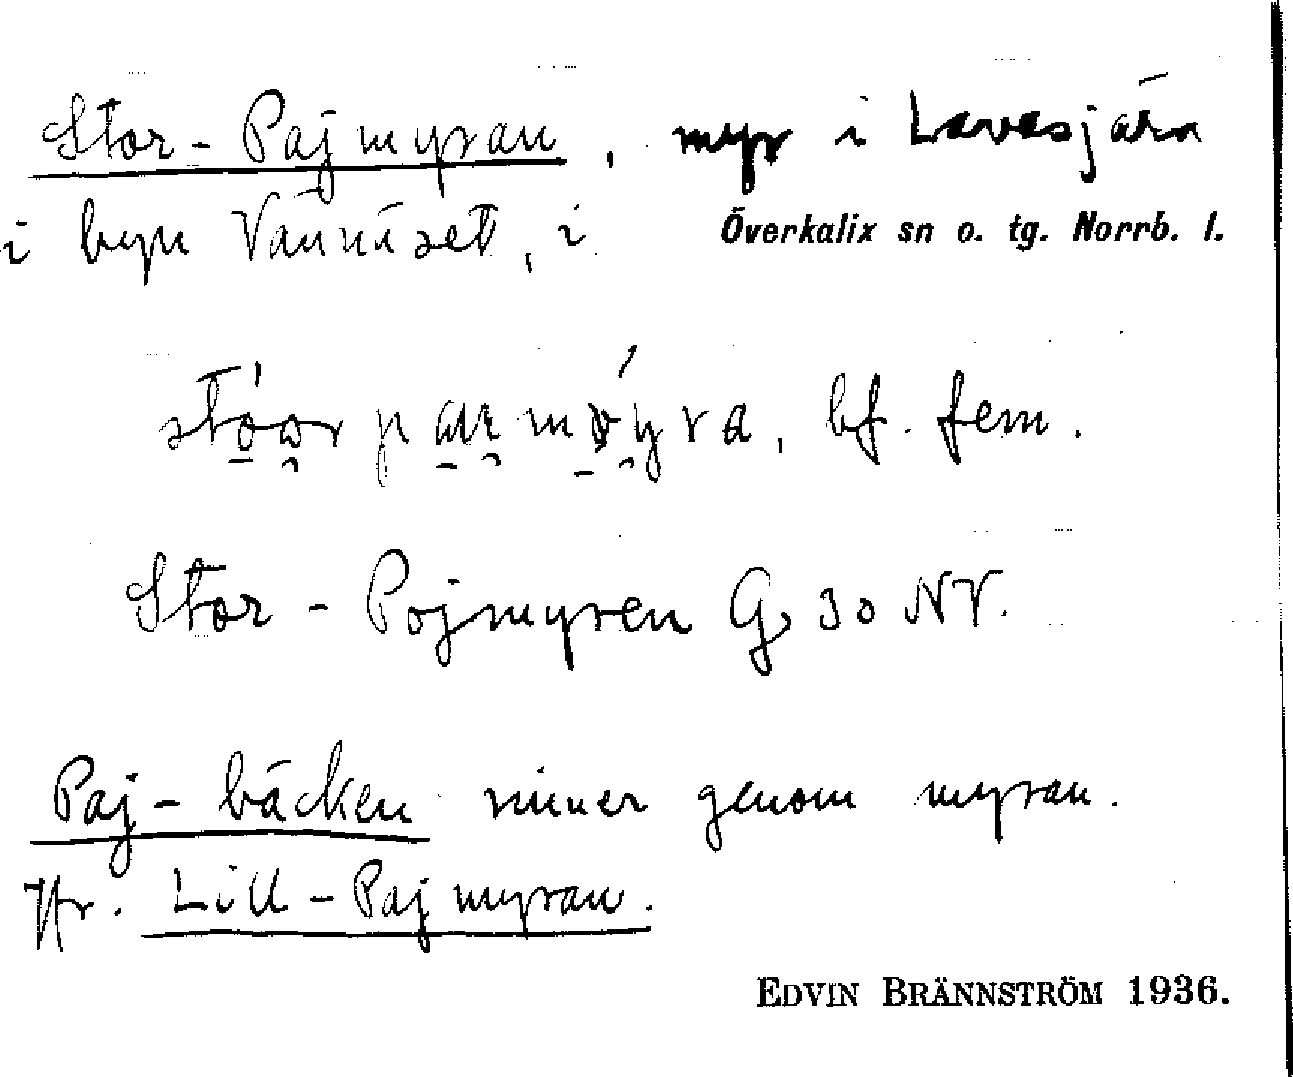 Stor-Pajmyran, myr i
i byn Vännäset, i Överkalix sn o. tg. Norrb. l.
bf. fem.
Stor-Pojmyren G. 30 NV.
Paj-bäcken rinner genom myran.
Jfr. Lill-Pajmyran.
EDVIN BRÄNNSTRÖM 1936.